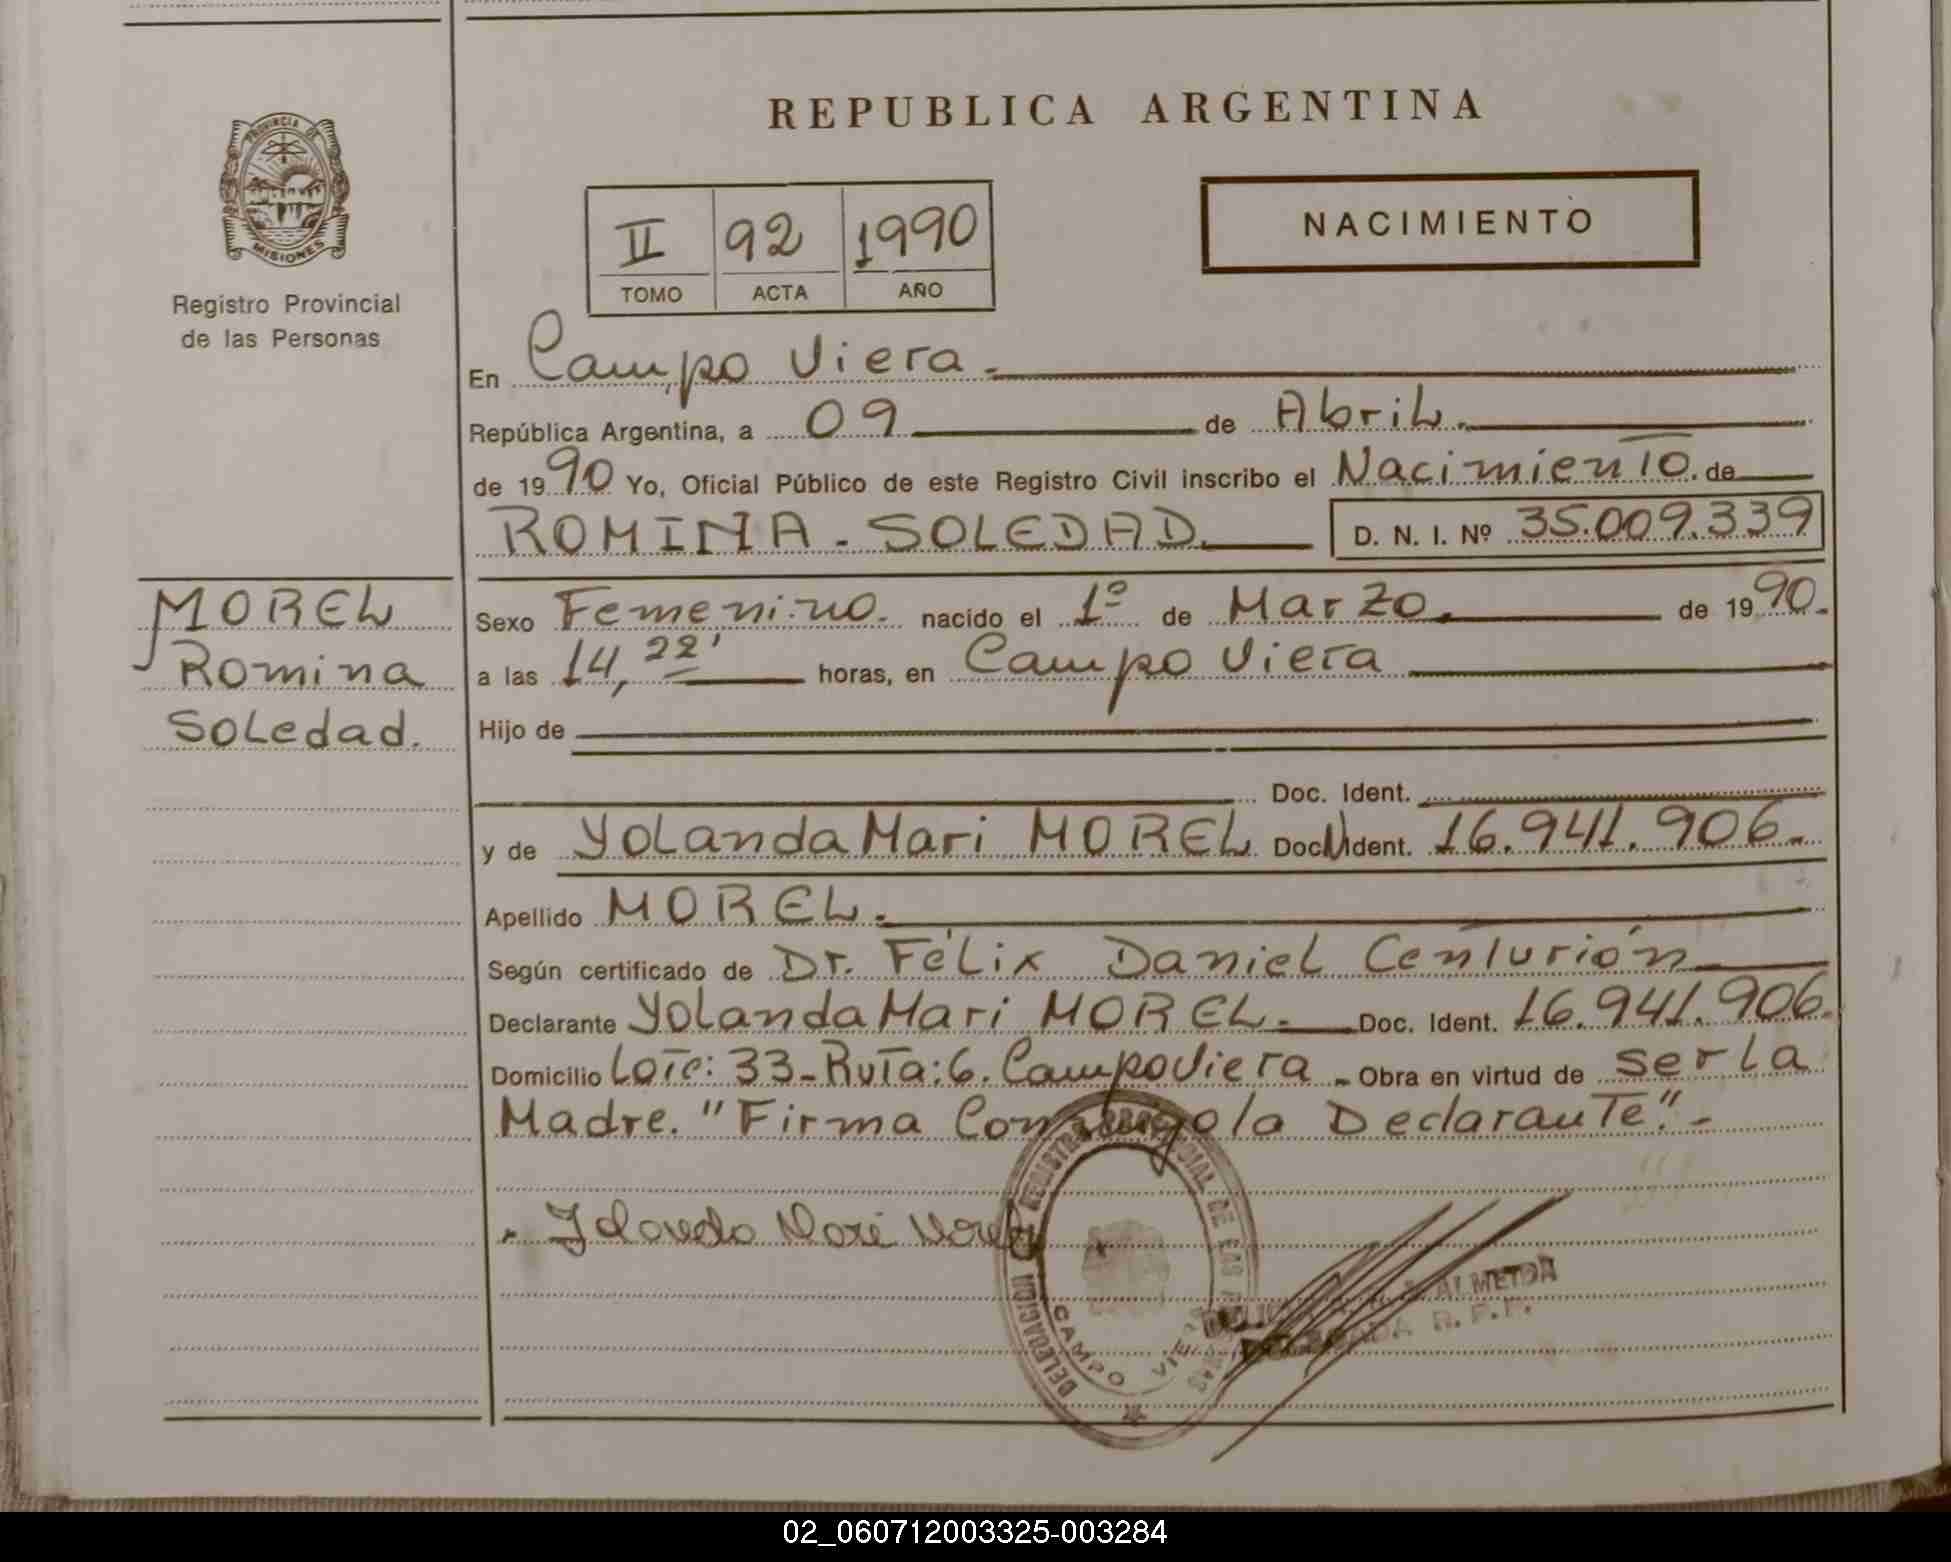 PROVINCIA DE
MISIONES
Registro Provincial
de las Personas
MOREL
Romina
Soledad.
REPUBLICA ARGENTINA
II 92 1990
TOMO ACTA AÑO
NACIMIENTO
En Campo Viera.
República Argentina, a 09 de Abril.
de 1990 Yo, Oficial Público de este Registro Civil inscribo el Nacimiento. de
ROMINA - SOLEDAD. D. N. I. Nº 35.009.339
Sexo Femenino. nacido el 1º de Marzo. de 1990.
a las 14,22' horas, en Campo Viera
Hijo de
Doc. Ident.
y de Yolanda Mari MOREL Doc. Ident. 16.941.906.
Apellido MOREL.
Según certificado de Dr. Félix Daniel Centurión
Declarante Yolanda Mari MOREL. Doc. Ident. 16.941.906.
Domicilio Lote: 33-Ruta: 6. Campo Viera. Obra en virtud de ser la
Madre. "Firma Conmigo la Declarante".-
DELEGACION REGISTRO DE LAS
CAMPO VIERA
ALMEIDA
02_060712003325-003284